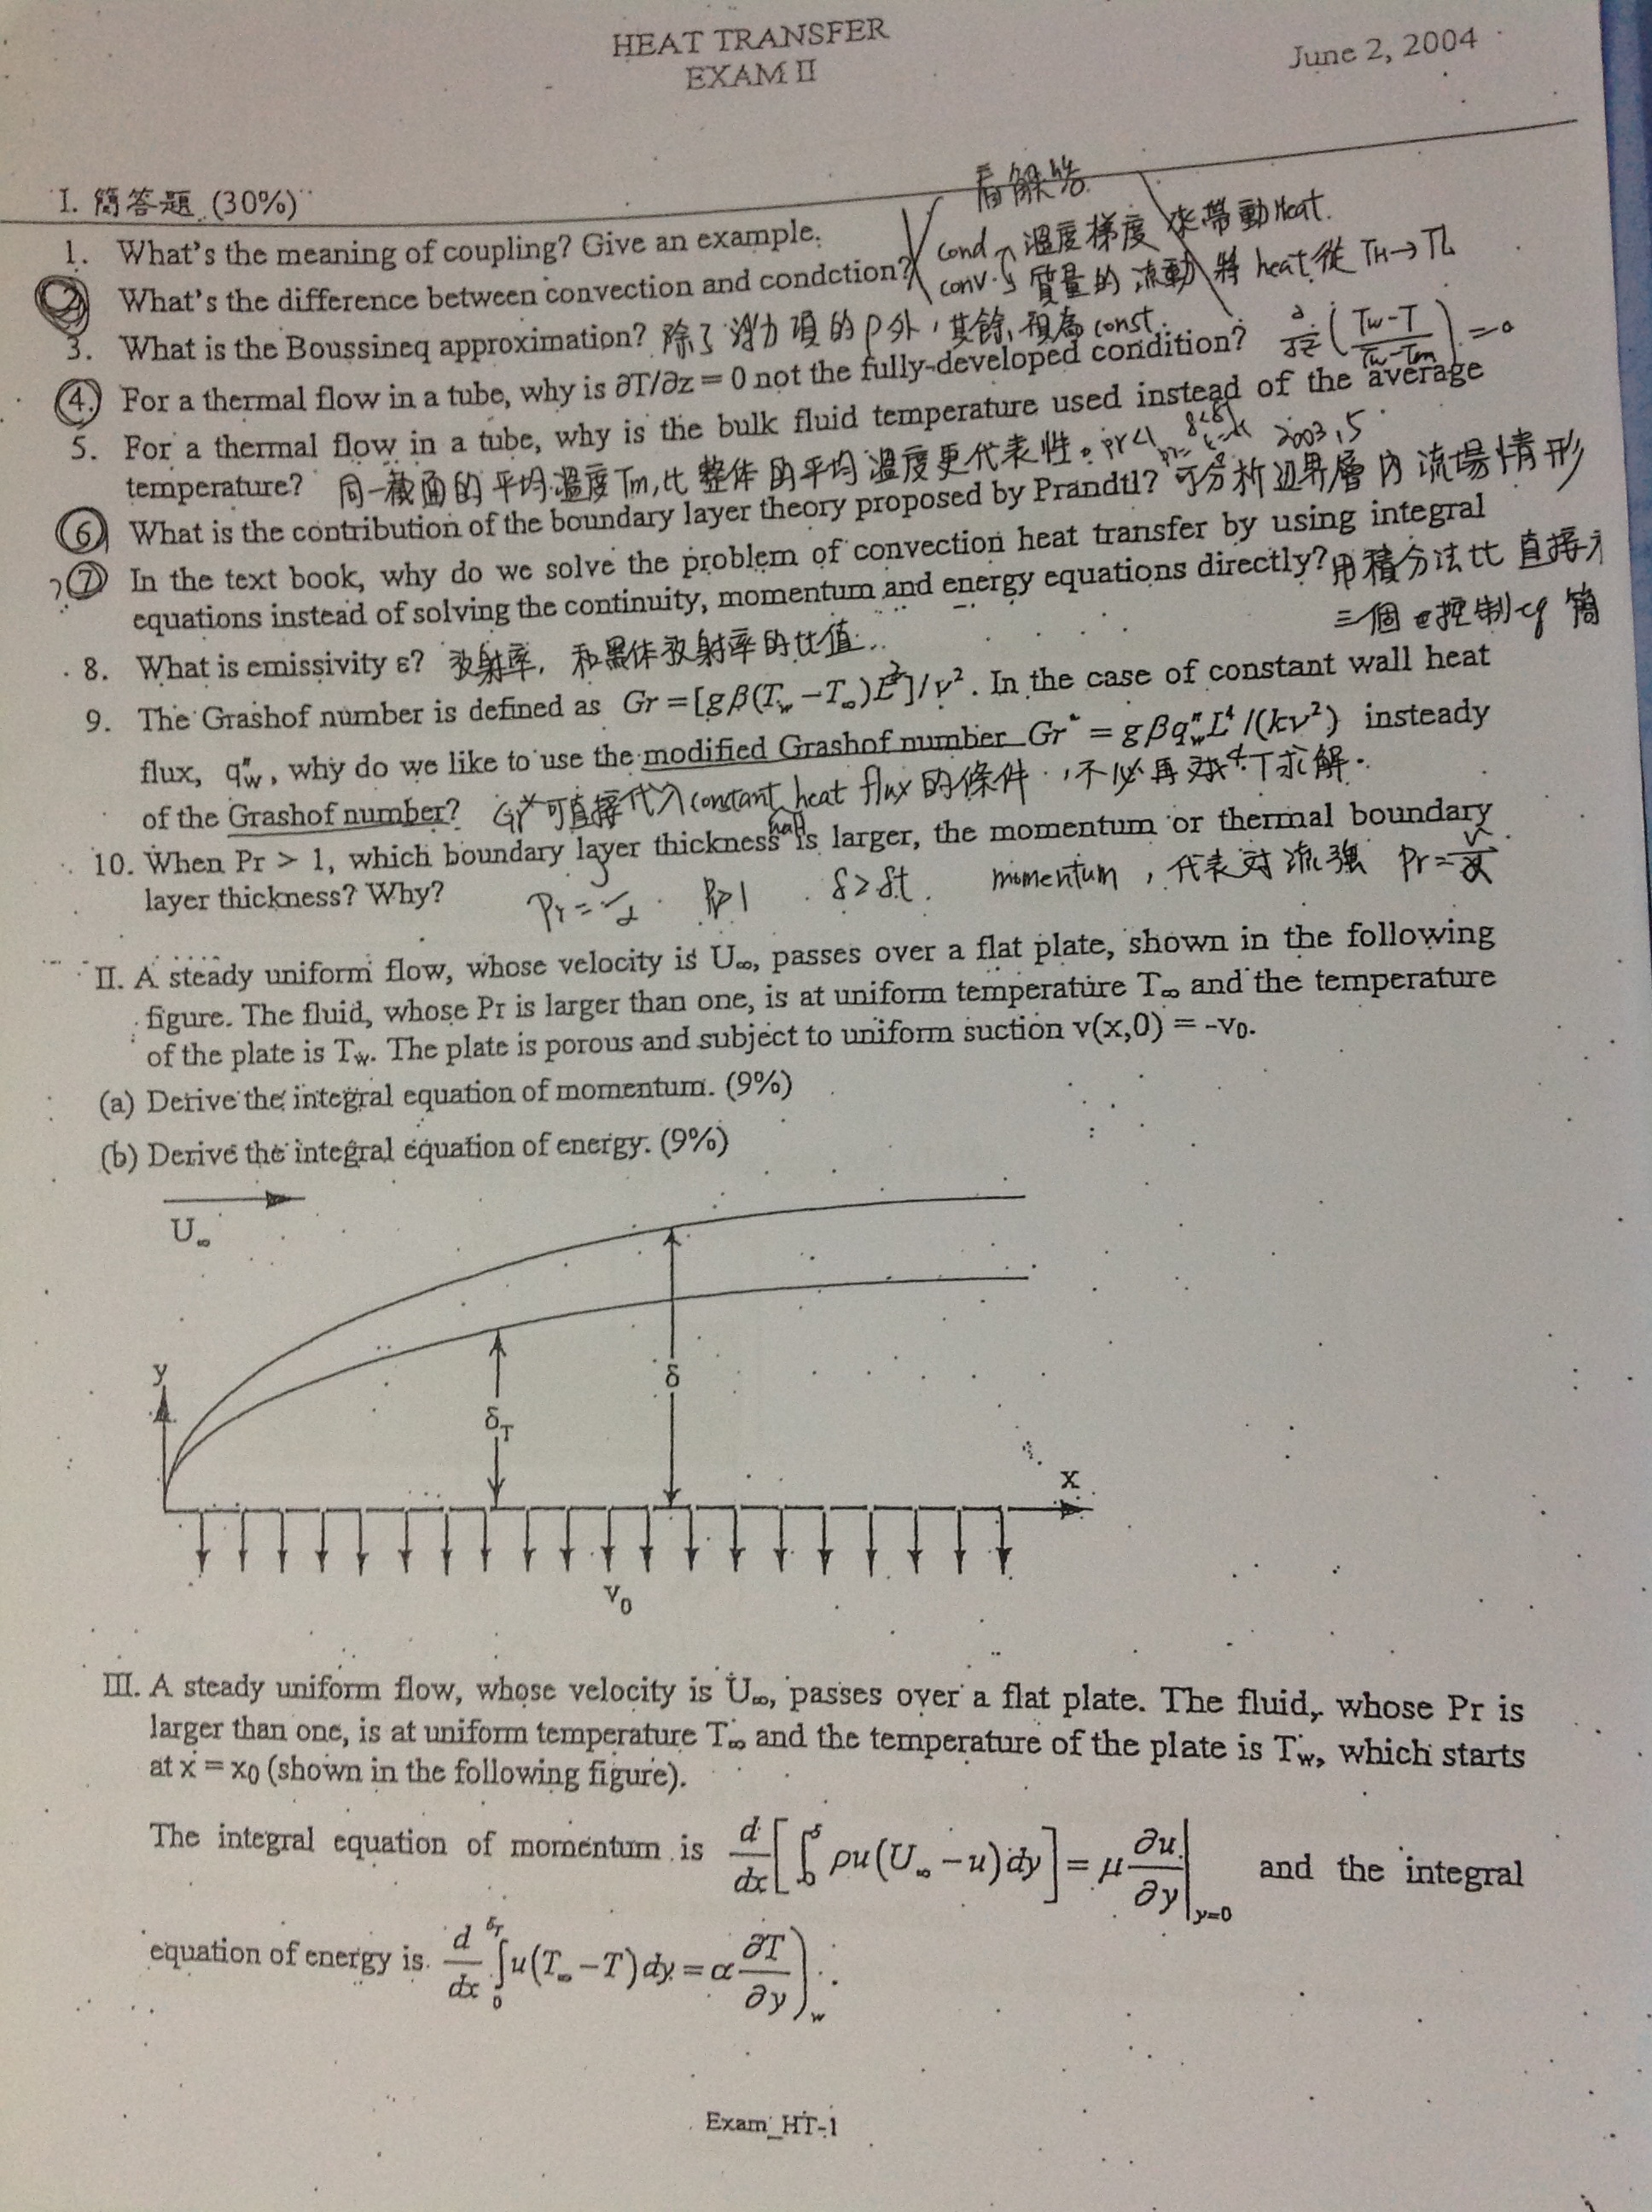 HEAT TRANSFER
EXAM II
June 2, 2004
I. 簡答題 (30%)
看解答
1. What's the meaning of coupling? Give an example.
cond → 溫度梯度 來帶動Heat.
2. What's the difference between convection and condction?
conv. → 質量的流動 將 heat 從 TH→TL
3. What is the Boussineq approximation? 除了浮力項的ρ外,其餘視為const.
4. For a thermal flow in a tube, why is ∂T/∂z = 0 not the fully-developed condition? ∂/∂z (Tw-T / Tw-Tm) = 0
5. For a thermal flow in a tube, why is the bulk fluid temperature used instead of the average
temperature? 同一截面的平均溫度Tm,比整体的平均溫度更代表性。 Pr<1 2003,5
6. What is the contribution of the boundary layer theory proposed by Prandtl? 可分析边界層內流場情形
7. In the text book, why do we solve the problem of convection heat transfer by using integral
equations instead of solving the continuity, momentum and energy equations directly? 用積分法比直接
三個 控制eq 簡
8. What is emissivity ε? 放射率, 和黑体放射率的比值..
9. The Grashof number is defined as Gr = [gβ(Tw − T∞)L³]/ν². In the case of constant wall heat
flux, q"w, why do we like to use the modified Grashof number Gr* = gβq"wL⁴/(kν²) insteady
of the Grashof number? Gr*可直接代入constant wall heat flux的條件,不必再対△T求解.
10. When Pr > 1, which boundary layer thickness is larger, the momentum or thermal boundary
layer thickness? Why? Pr = ν/α Pr>1 δ>δt. momentum, 代表対流強 Pr=ν/α
II. A steady uniform flow, whose velocity is U∞, passes over a flat plate, shown in the following
figure. The fluid, whose Pr is larger than one, is at uniform temperature T∞ and the temperature
of the plate is Tw. The plate is porous and subject to uniform suction v(x,0) = -v0.
(a) Derive the integral equation of momentum. (9%)
(b) Derive the integral equation of energy. (9%)
U∞
y
δT
δ
x
v0
III. A steady uniform flow, whose velocity is U∞, passes over a flat plate. The fluid, whose Pr is
larger than one, is at uniform temperature T∞ and the temperature of the plate is Tw, which starts
at x = x0 (shown in the following figure).
The integral equation of momentum is d/dx[∫0^δ ρu(U∞ − u)dy] = μ ∂u/∂y|y=0 and the integral
equation of energy is d/dx ∫0^δT u(T∞ − T)dy = α ∂T/∂y)w.
Exam_HT-1